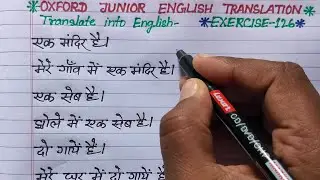 *OXFORD JUNIOR ENGLISH TRANSLATION*
Translate into English- *EXERCISE-126
एक मंदिर है।
मेरे गाँव में एक मंदिर है।
एक सेब है।
झोले में एक सेब है।
दो गायें हैं।
मेरे घर में दो गायें हैं
CD/DVD/OH